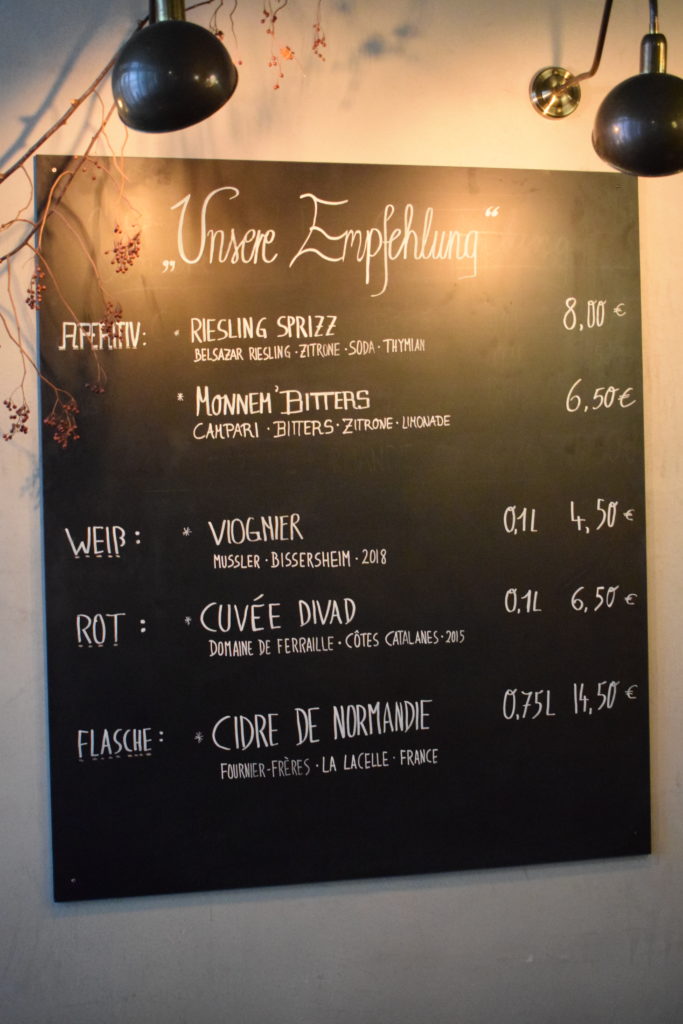 „Unsere Empfehlung“
APERITIV: * RIESLING SPRIZZ 8,00 €
BELSAZAR RIESLING · ZITRONE · SODA · THYMIAN
* MONNEM'BITTERS 6,50 €
CAMPARI · BITTERS · ZITRONE · LIMONADE
WEIß: * VIOGNIER 0,1L 4,50 €
MUSSLER · BISSERSHEIM · 2018
ROT : * CUVÉE DIVAD 0,1L 6,50 €
DOMAINE DE FERRAILLE · CÔTES CATALANES · 2015
FLASCHE: * CIDRE DE NORMANDIE 0,75L 14,50 €
FOURNIER-FRÈRES · LA LACELLE · FRANCE